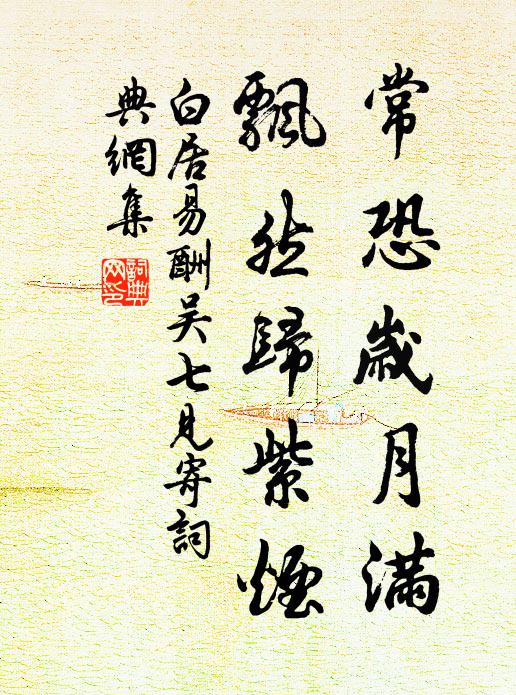 常恐歲月滿
飄然歸紫煙
白居易酬吴七見寄詞
典網集
詞典
网印